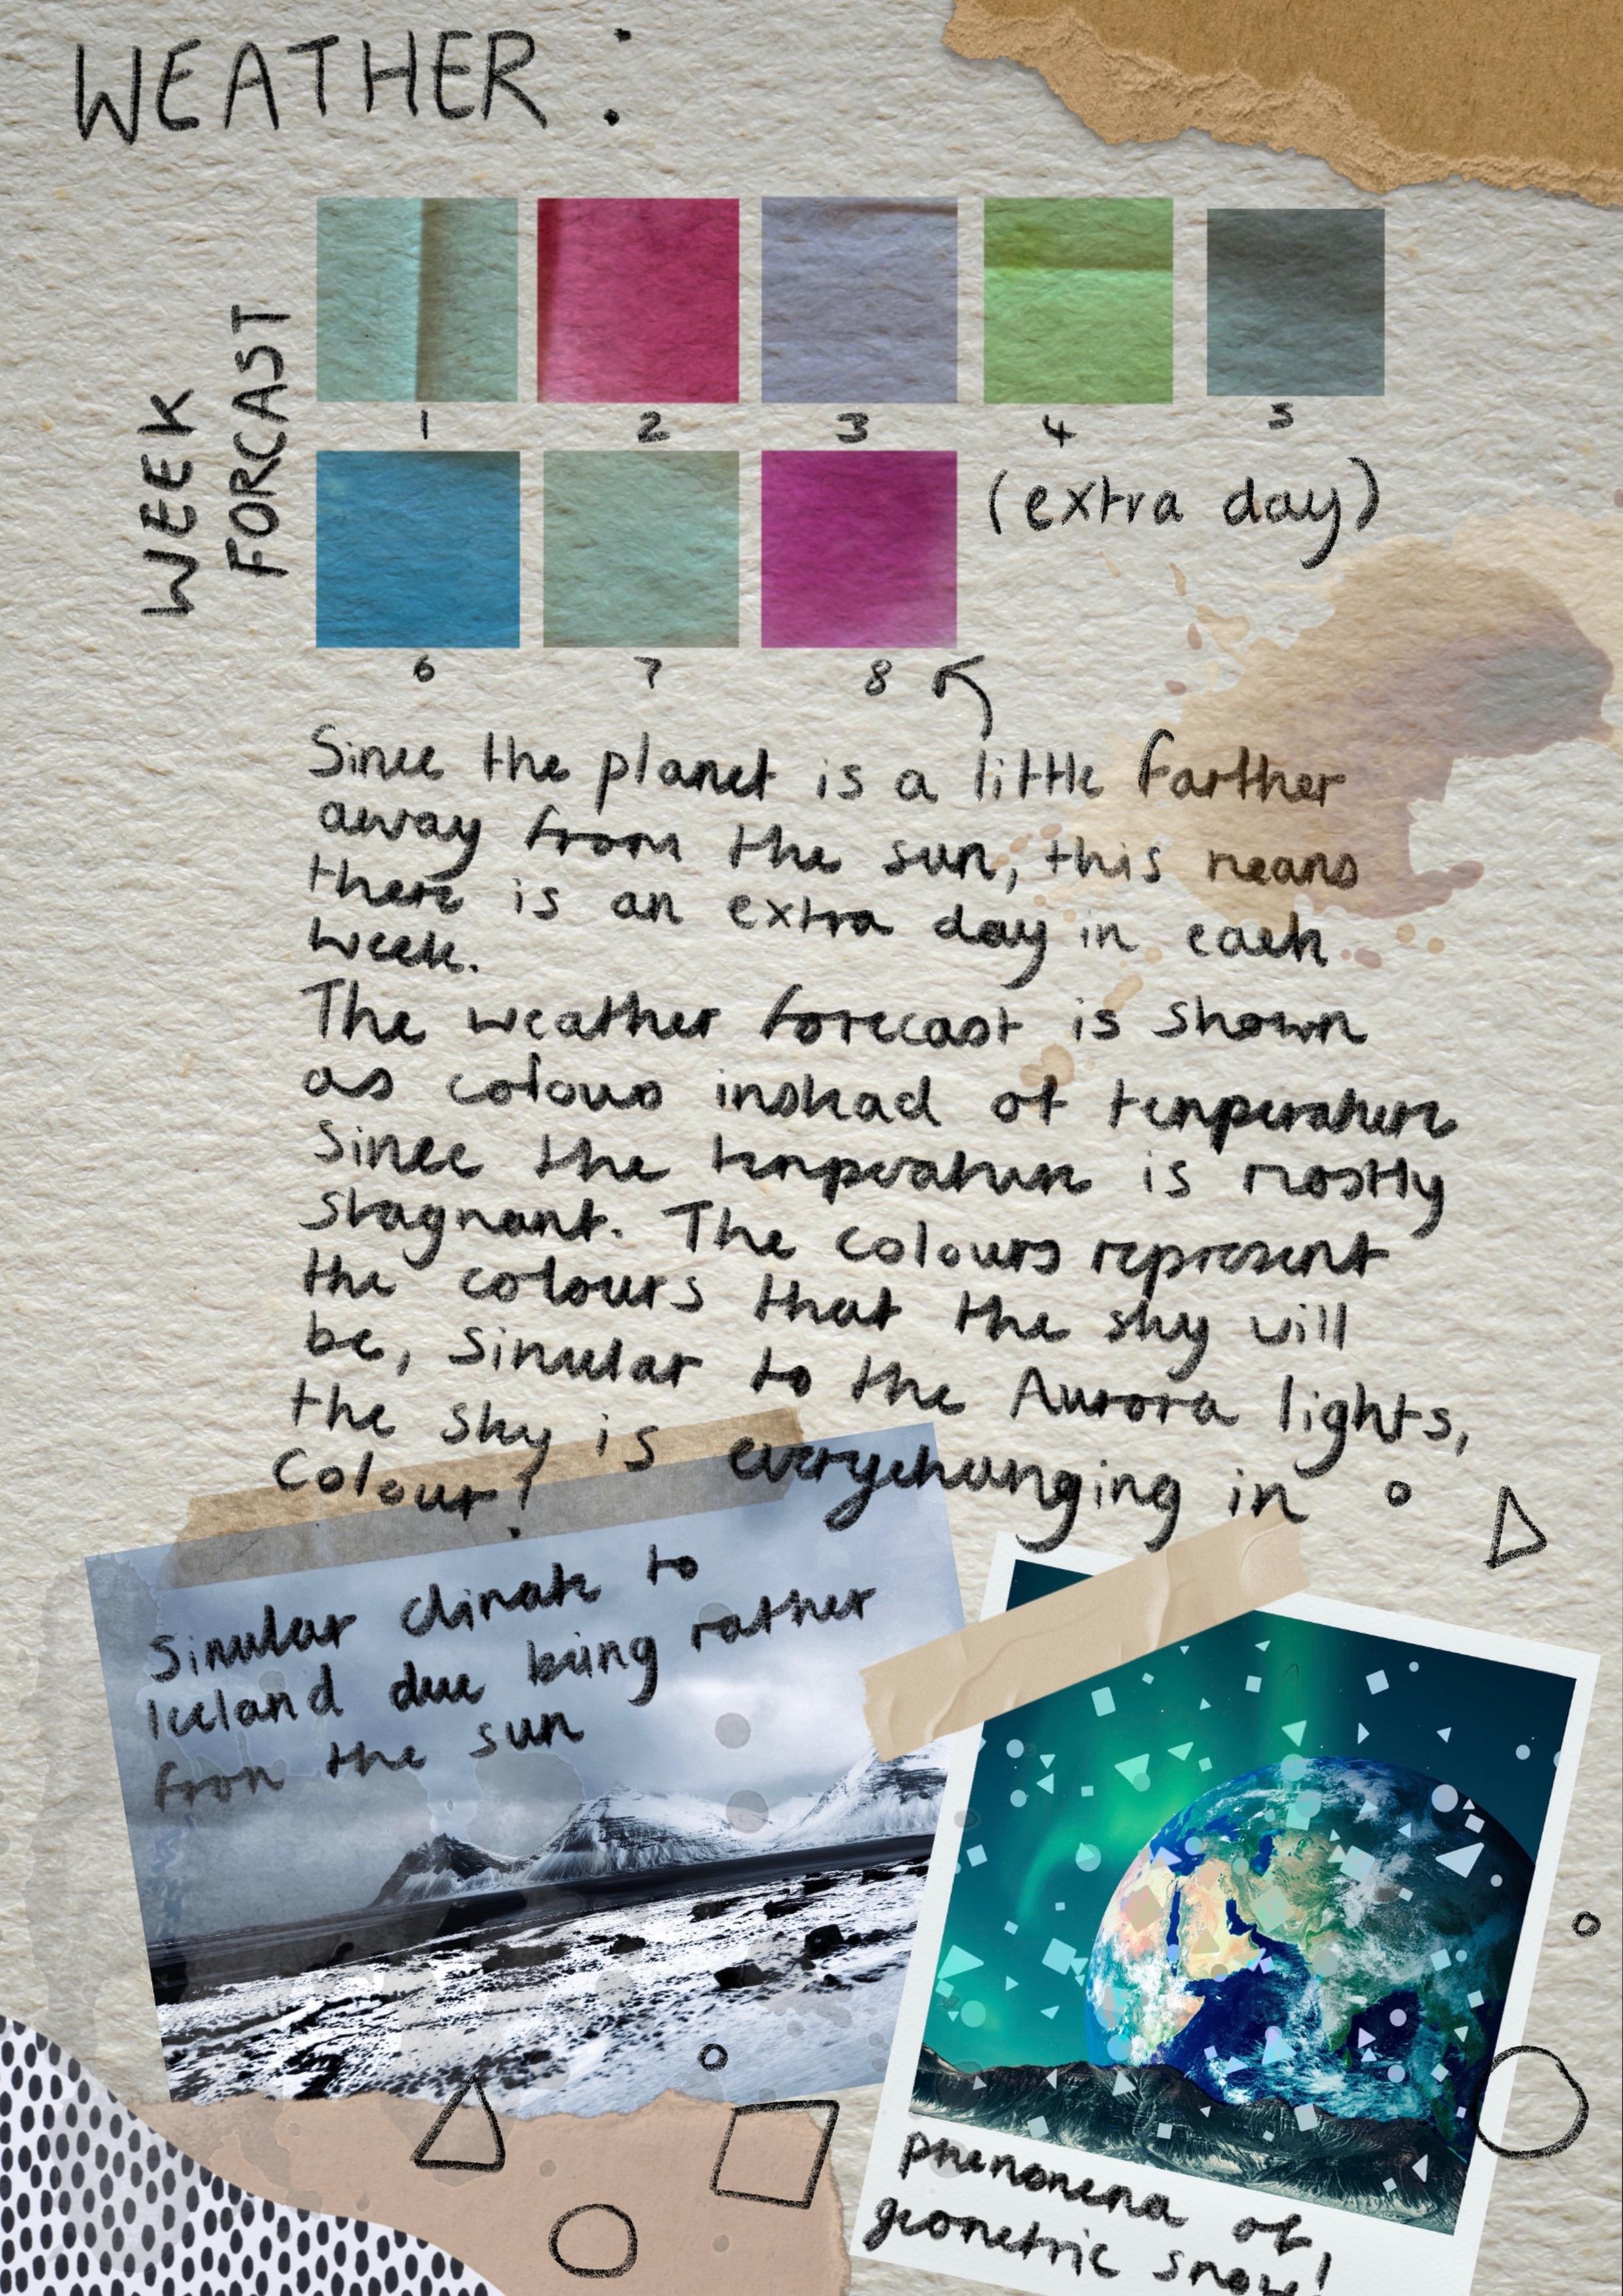 WEATHER :
WEEK
FORCAST
1 2 3 4 5
(extra day)
6 7 8
Since the planet is a little farther
away from the sun, this means
there is an extra day in each
week.
The weather forecast is shown
as colours instead of temperature
Since the temperature is mostly
stagnant. The colours represent
the colours that the sky will
be, similar to the Aurora lights,
the sky is everychanging in
Colour!
Similar climate to
Iceland due being rather
from the sun
phenomena of
geometric snow!